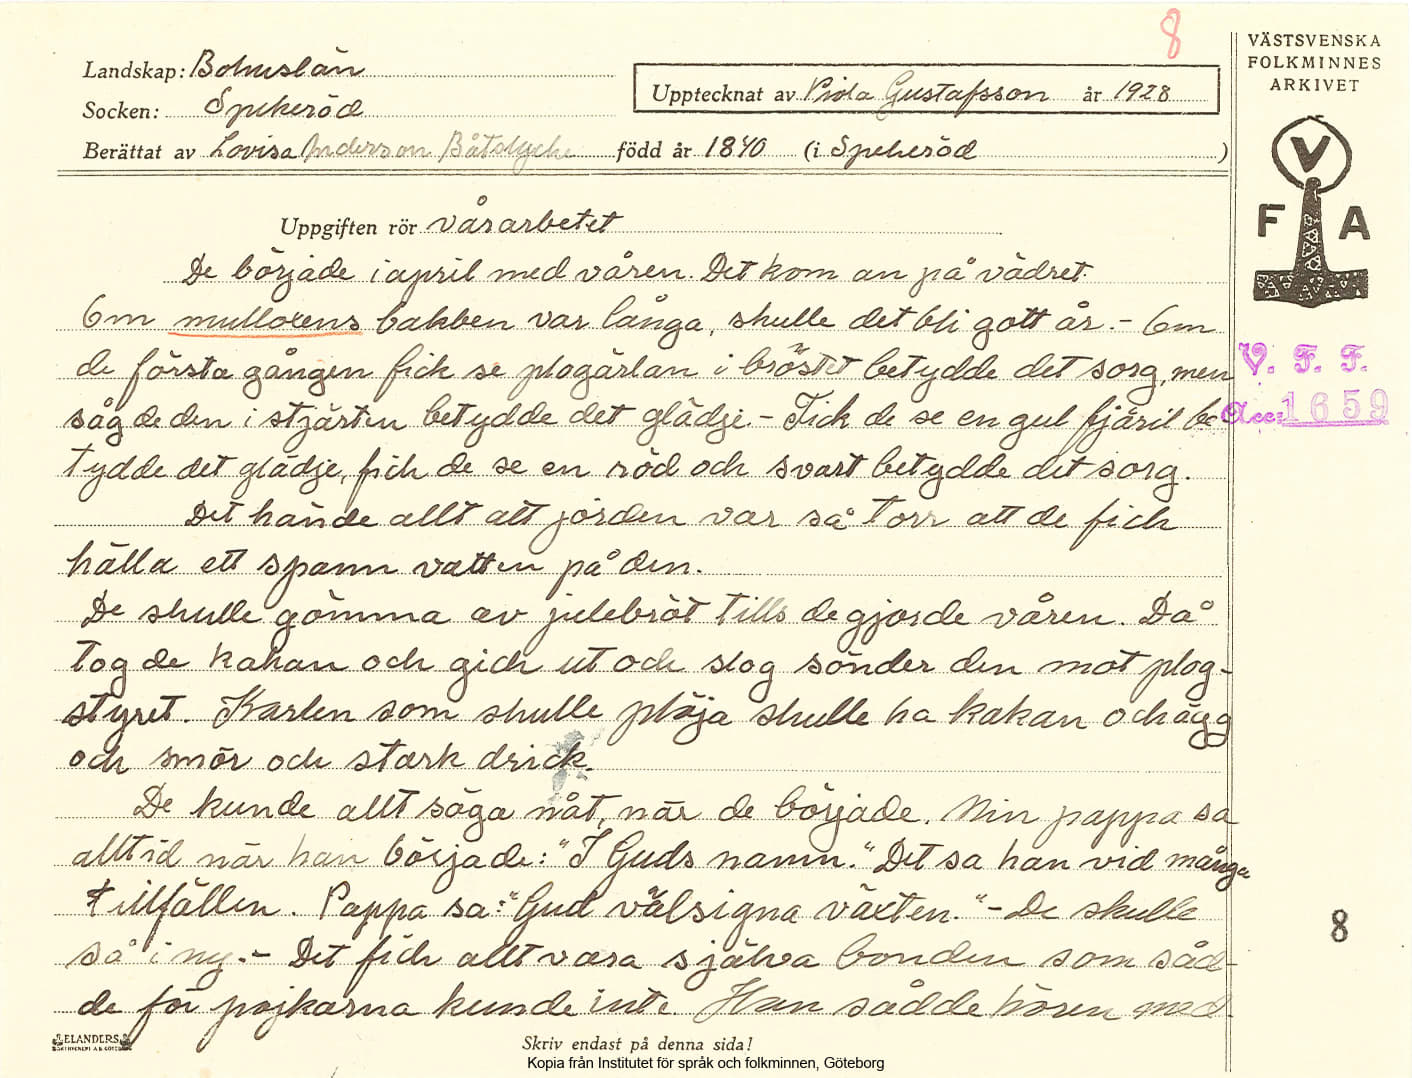 8
Landskap: Bohuslän
Socken: Spekeröd
Upptecknat av Viola Gustafsson år 1928
Berättat av Lovisa Anderson Båtslycke född år 1840 (i Spekeröd )
VÄSTSVENSKA
FOLKMINNES
ARKIVET
V
F A
Uppgiften rör vårarbetet
De började i april med våren. Det kom an på vädret.
Om mulloxens bakben var långa, skulle det bli gott år. - Om
de första gången fick se plogärlan i bröstet betydde det sorg, men
såg de den i stjärten betydde det glädje. - Fick de se en gul fjäril be
tydde det glädje, fick de se en röd och svart betydde det sorg.
V. F. F.
Acc: 1659
Det hände allt att jorden var så torr att de fick
hälla ett spann vatten på den.
De skulle gömma av julebröt tills de gjorde våren. Då
tog de kakan och gick ut och slog sönder den mot plog-
styret. Karlen som skulle plöja skulle ha kakan och ägg
och smör och stark drick.
De kunde allt säga nåt, när de började. Min pappa sa
alltid när han började: "I Guds namn." Det sa han vid många
tillfällen. Pappa sa: "Gud välsigna växten." - De skulle
så i ny. - Det fick allt vara själva bonden som såd-
de för pojkarna kunde inte. Han sådde hören med
8
ELANDERS
Skriv endast på denna sida!
Kopia från Institutet för språk och folkminnen, Göteborg